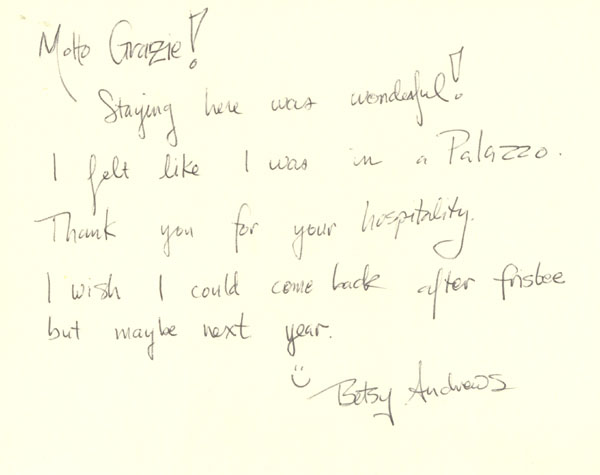 Molto Grazie!
Staying here was wonderful!
I felt like I was in a Palazzo.
Thank you for your hospitality.
I wish I could come back after frisbee
but maybe next year.
Betsy Andrews